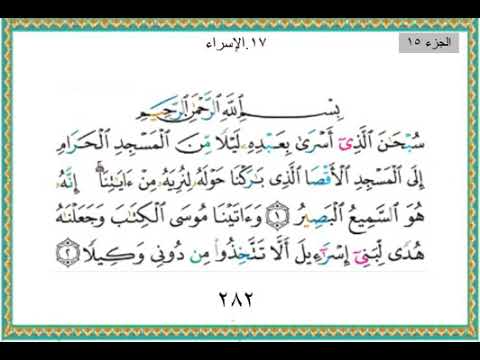 ١٧.الإسراء
الجزء ١٥
بِسْمِ ٱللَّهِ ٱلرَّحْمَٰنِ ٱلرَّحِيمِ
سُبْحَٰنَ ٱلَّذِىٓ أَسْرَىٰ بِعَبْدِهِۦ لَيْلًا مِّنَ ٱلْمَسْجِدِ ٱلْحَرَامِ
إِلَى ٱلْمَسْجِدِ ٱلْأَقْصَا ٱلَّذِى بَٰرَكْنَا حَوْلَهُۥ لِنُرِيَهُۥ مِنْ ءَايَٰتِنَآ ۚ إِنَّهُۥ
هُوَ ٱلسَّمِيعُ ٱلْبَصِيرُ ١ وَءَاتَيْنَا مُوسَى ٱلْكِتَٰبَ وَجَعَلْنَٰهُ
هُدًى لِّبَنِىٓ إِسْرَٰٓءِيلَ أَلَّا تَتَّخِذُوا۟ مِن دُونِى وَكِيلًا ٢
٢٨٢